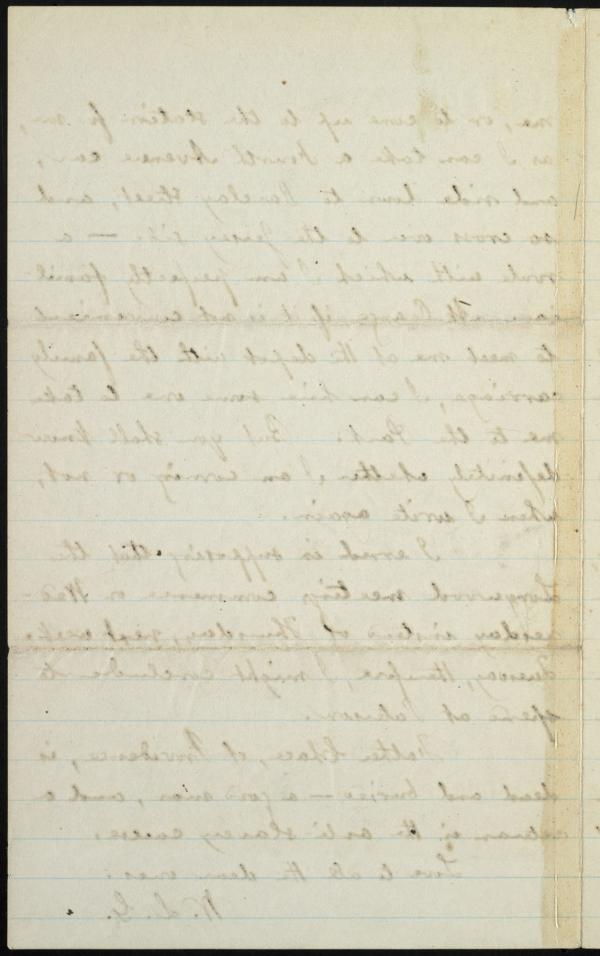 me, or to come up to the station for me,
as I can take a Fourth Avenue car,
and ride down to Barclay street, and
so cross over to the Jersey side — a
route with which I am perfectly famil-
iar. At Orange, if it is not convenient
to meet me at the depot with the family
carriage, I can hire some one to take
me to the Park. But you shall know
definitely whether I am coming or not,
when I write again.
I erred in supposing that the
Longwood meeting commences on Wed-
nesday instead of Thursday, next week.
Tuesday, therefore, I might conclude to
speak at Paterson.
Walter, of Providence, is
dead and buried — a good man, and a
veteran in the anti-slavery cause.
Love to all the dear ones.
W. L. G.